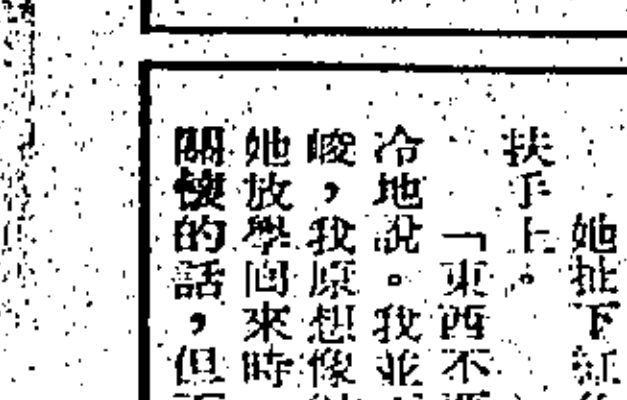 她扯下紅
扶手上。
「東西不
冷地說。我並
峻，我原想像
她放學回來時
關懷的話，但